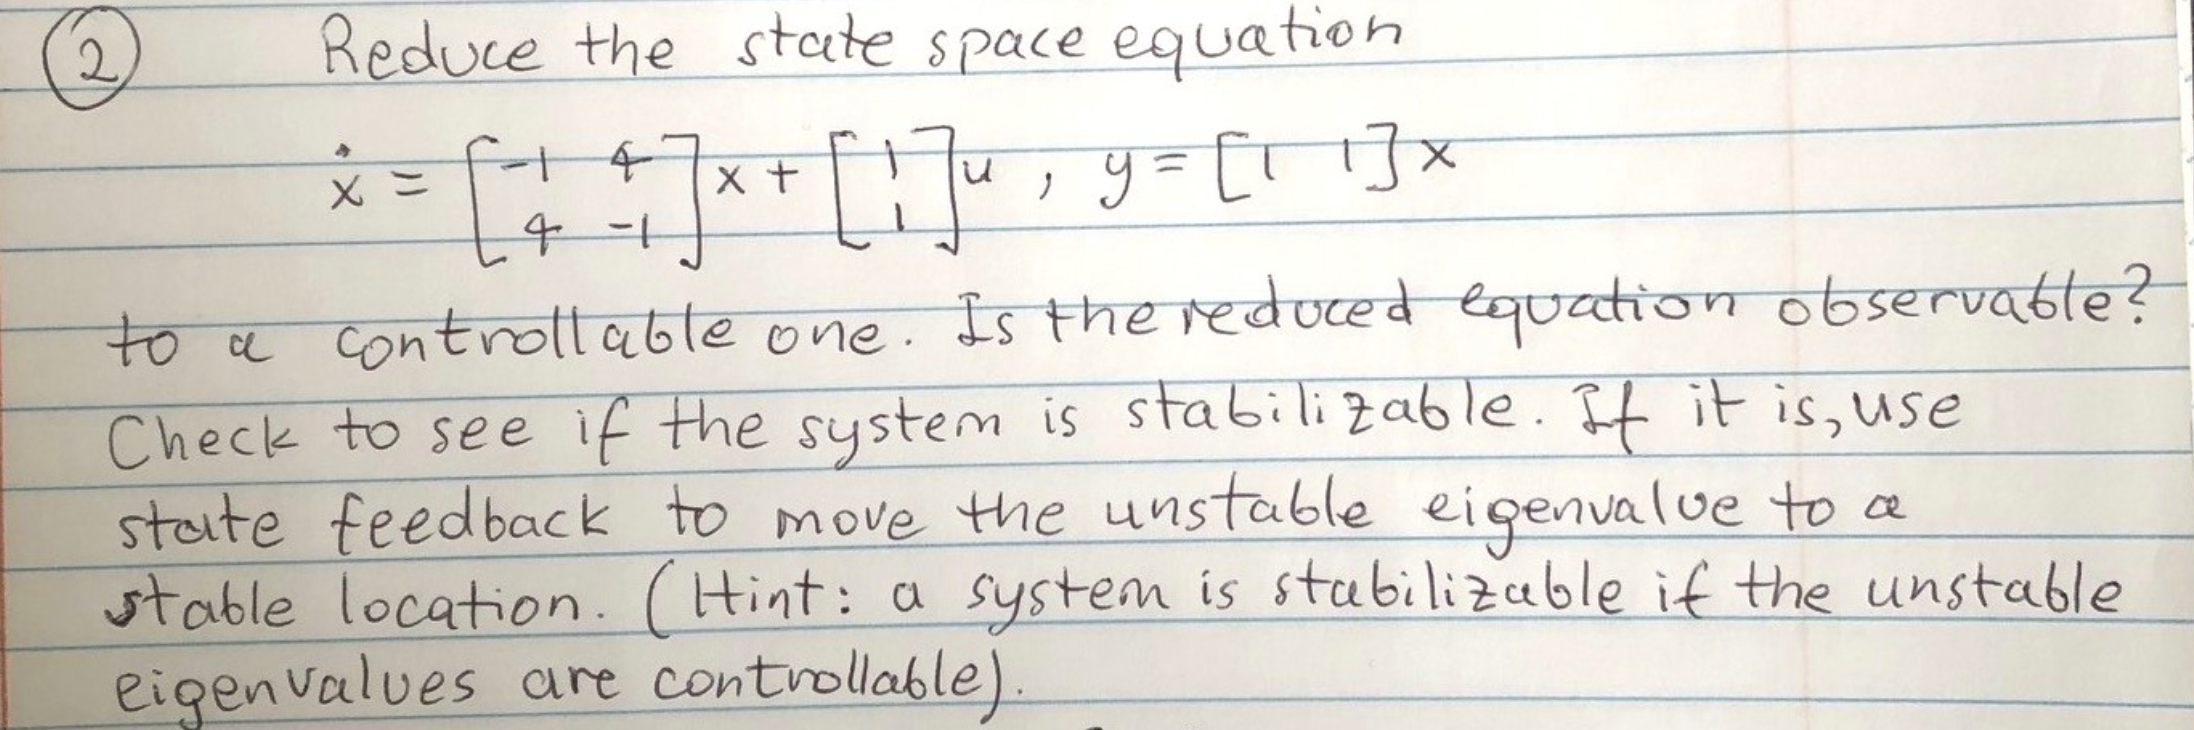 ② Reduce the state space equation
ẋ = [-1 4; 4 -1] x + [1; 1] u , y = [1 1] x
to a controllable one. Is the reduced equation observable?
Check to see if the system is stabilizable. If it is, use
state feedback to move the unstable eigenvalue to a
stable location. (Hint: a system is stabilizable if the unstable
eigenvalues are controllable).